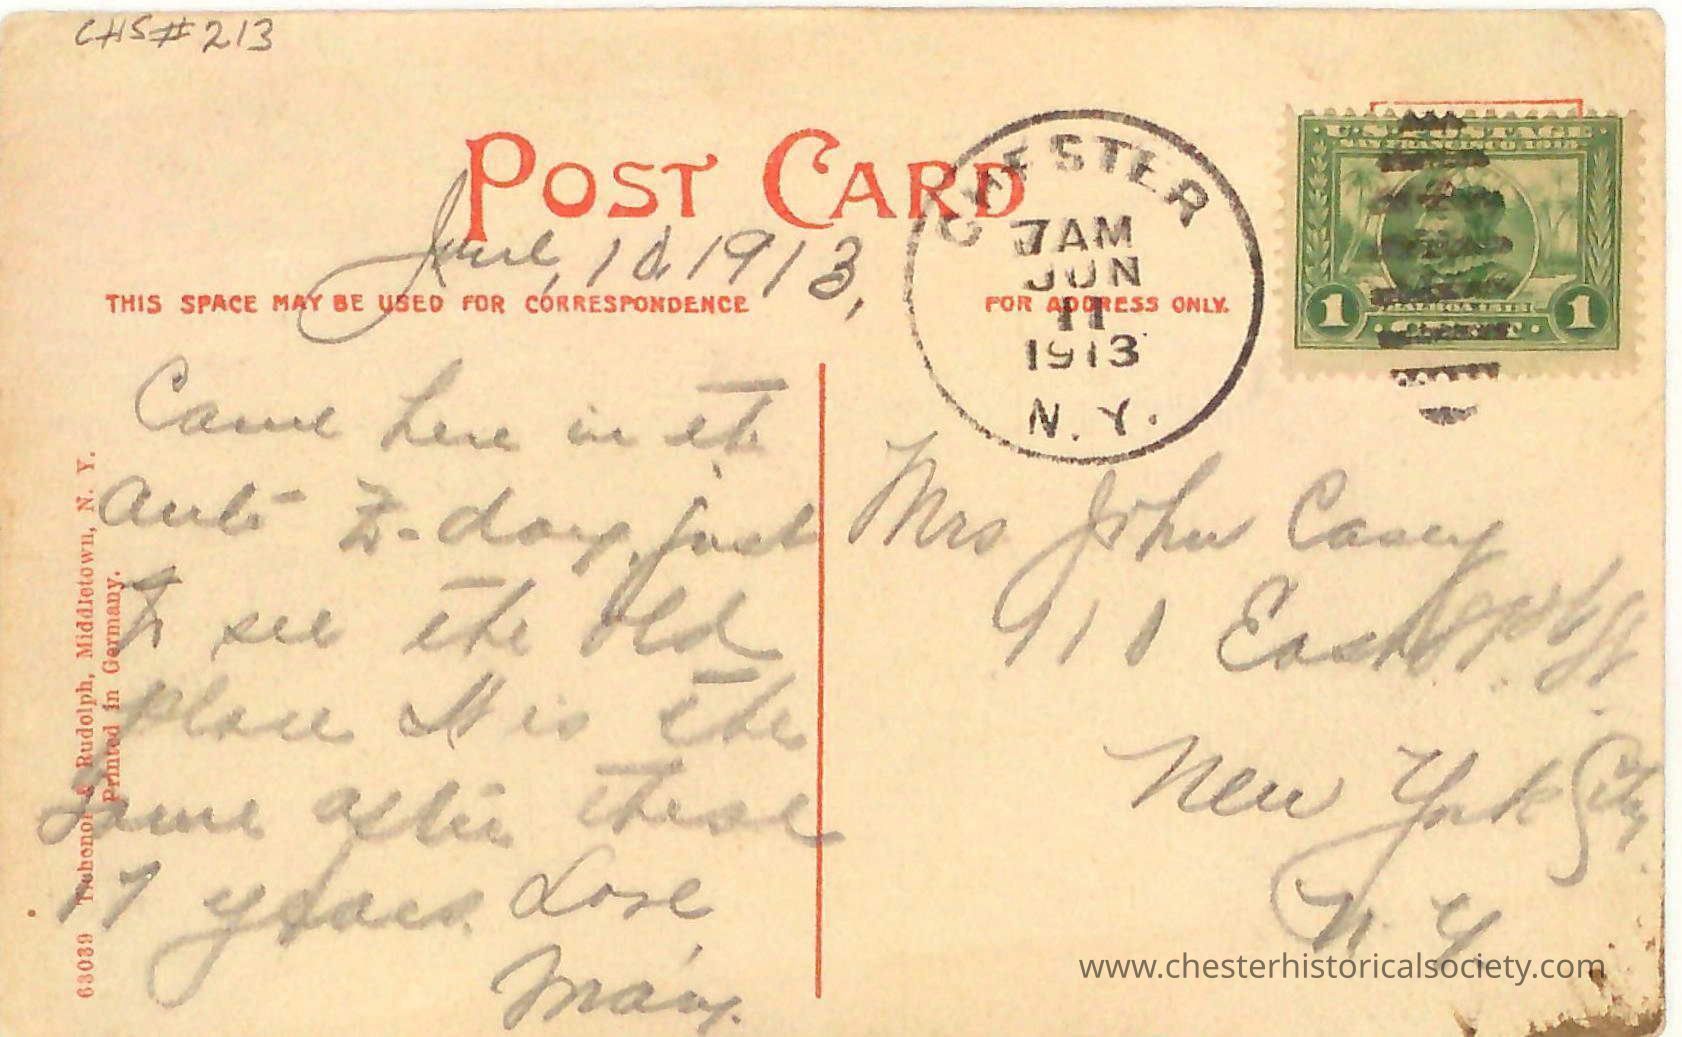 CHS#213
POST CARD
June, 10, 1913,
THIS SPACE MAY BE USED FOR CORRESPONDENCE
FOR ADDRESS ONLY.
CHESTER
7 AM
JUN
11
1913
N. Y.
U.S. POSTAGE
SAN FRANCISCO 1915
1
1
Came here in the
auto to-day, just
to see the old
place It is the
same after these
17 years. Love,
Mary.
Mrs John Casey
911 East St.
New York City
N. Y.
63039 & Rudolph, Middletown, N. Y.
Printed in Germany.
www.chesterhistoricalsociety.com